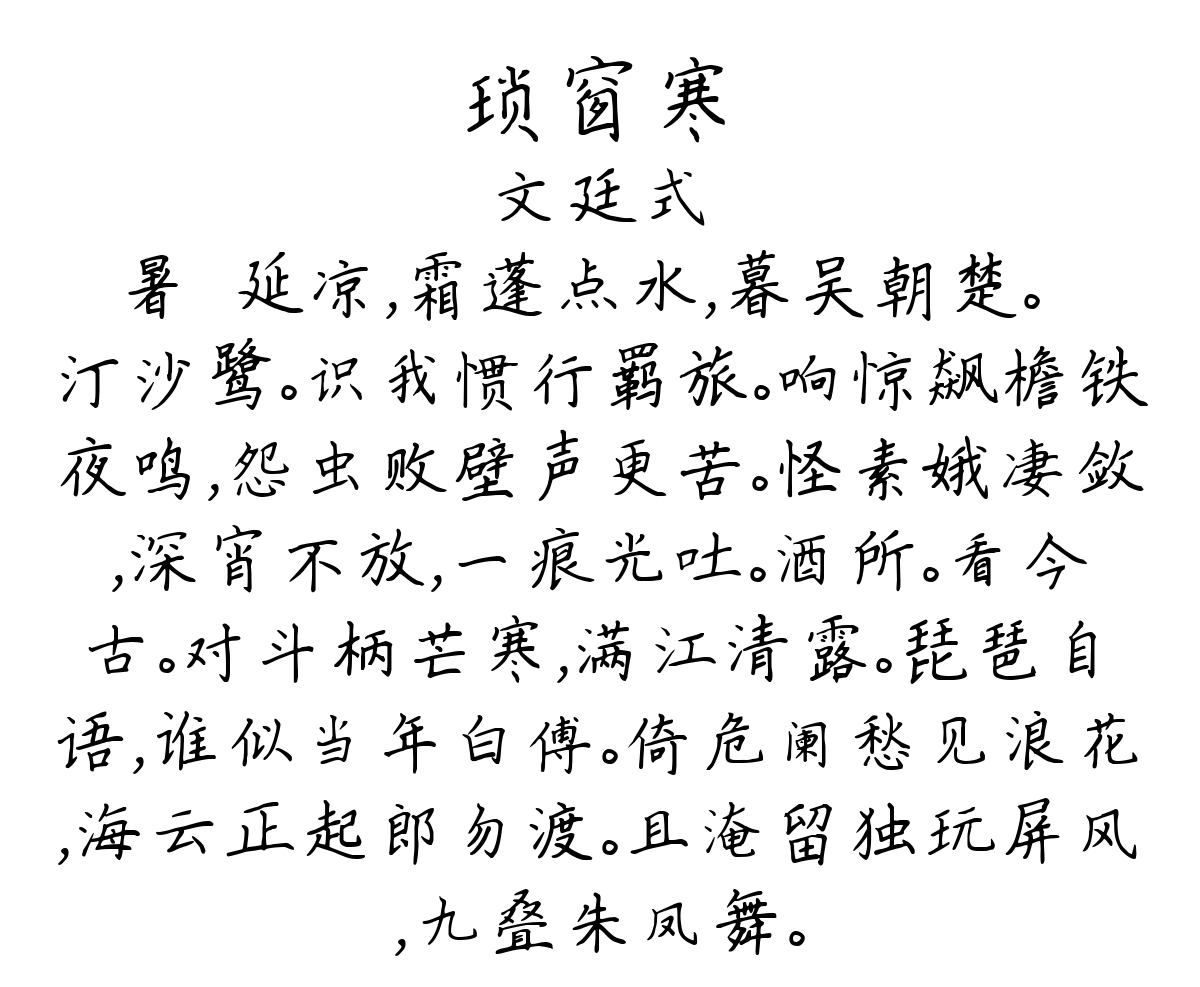 琐窗寒
文廷式
暑 延凉,霜蓬点水,暮吴朝楚。
汀沙鹭。识我惯行羁旅。响惊飙檐铁
夜鸣,怨虫败壁声更苦。怪素娥凄敛
,深宵不放,一痕光吐。酒所。看今
古。对斗柄芒寒,满江清露。琵琶自
语,谁似当年白傅。倚危阑愁见浪花
,海云正起郎勿渡。且淹留独玩屏风
,九叠朱凤舞。